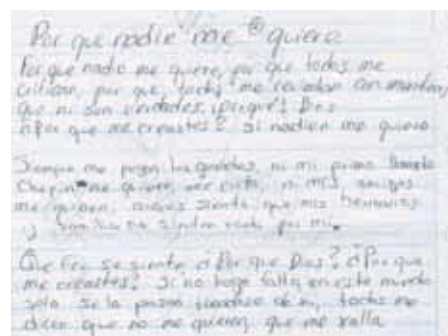 Por que nadie me quiere
Por que nadie me quiere, por que todos me
critican, por que, todos me
que ni son verdades, ¿porqué? Dios
¿Por que me creastes? Si nadien me quiere
Siempre me pasan, ni mi primo
Chapin me quiere, ni mis amigos
me quieren, siento que mis hermanos
y familia no sienten nada por mi.
Que feo se siente ¿Por que Dios? ¿Por que
me creastes? Si no hago falta en este mundo
solo se la pasan de mi, todos me
dicen que no me quieren, que me valla